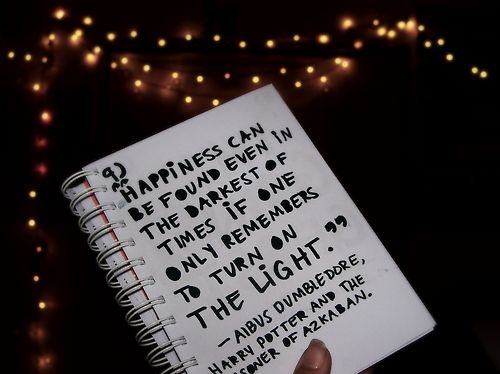 "HAPPINESS CAN
BE FOUND EVEN IN
THE DARKEST OF
TIMES IF ONE
ONLY REMEMBERS
TO TURN ON
THE LIGHT."
—AlBUS DUMBLEDORE,
HARRY POTTER AND THE
PRISONER OF AZKABAN.